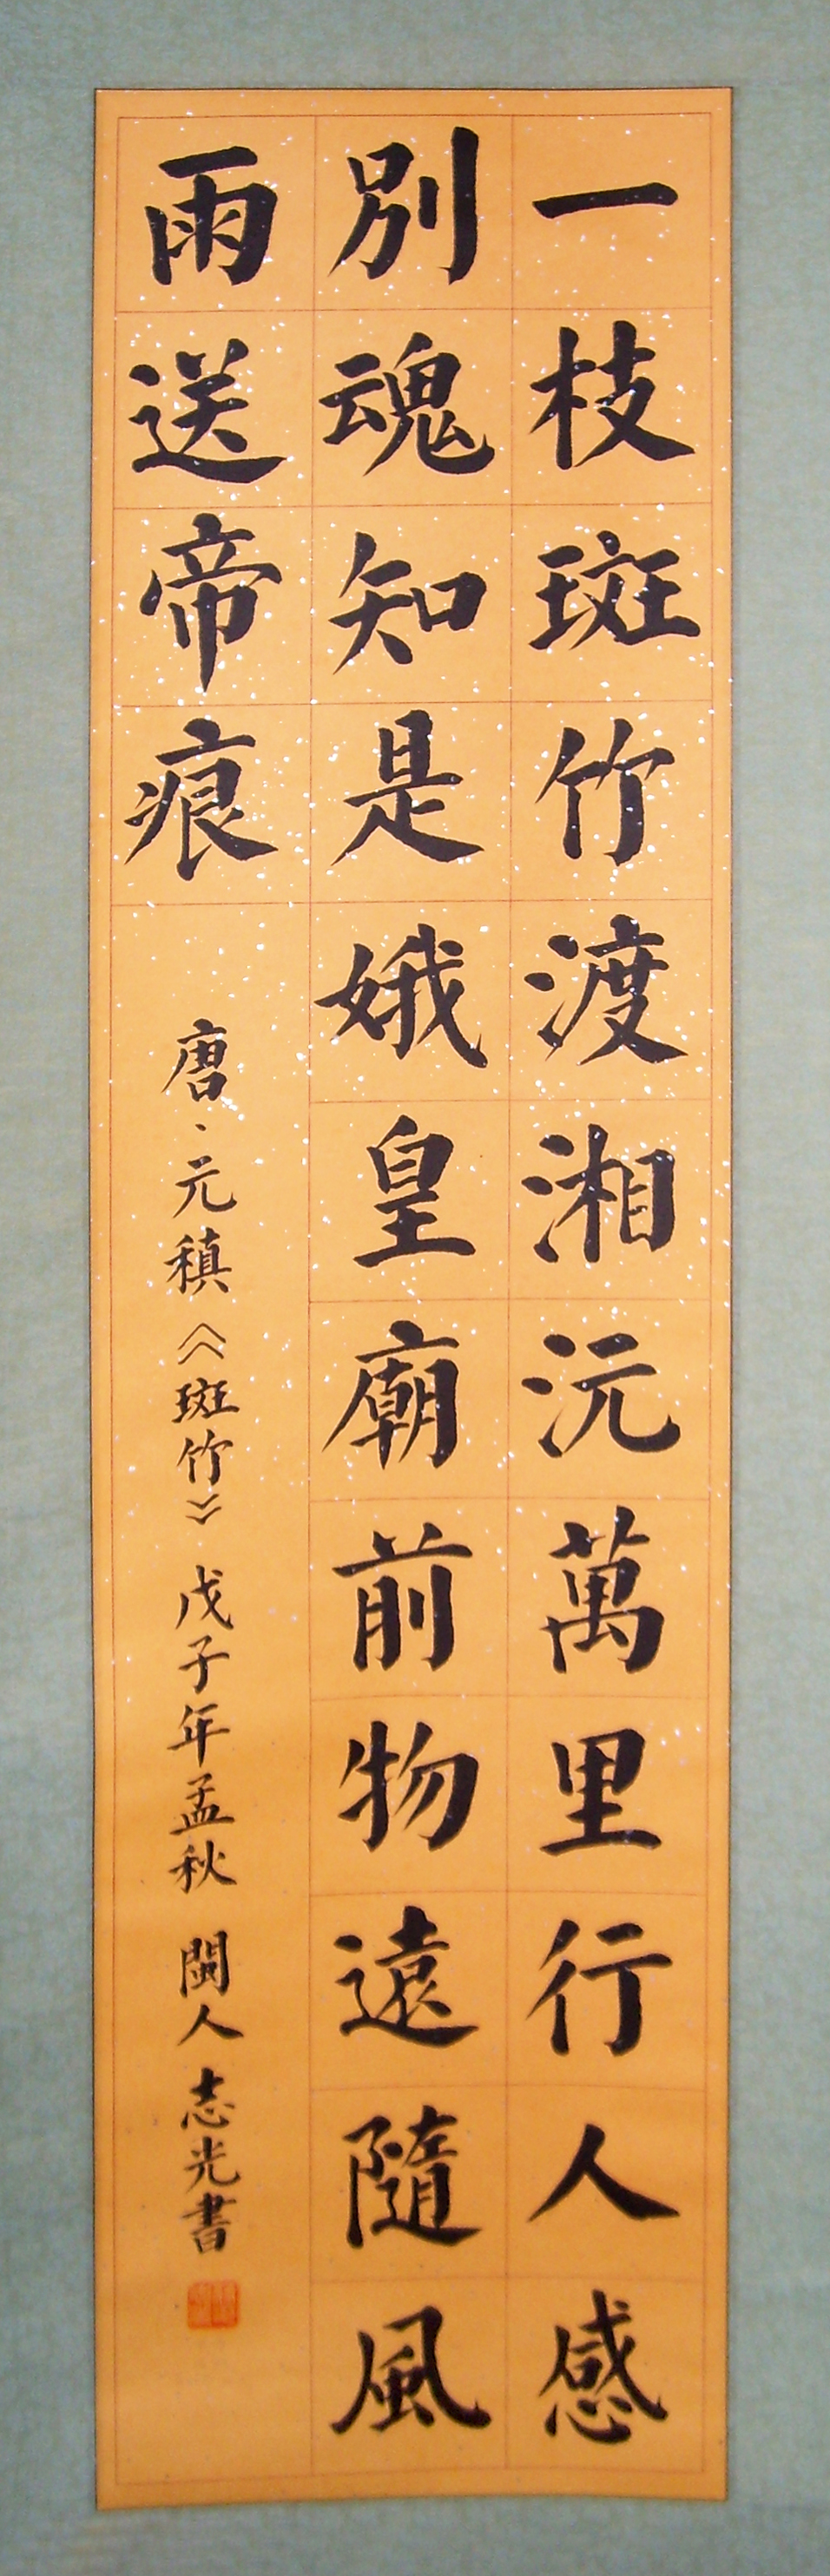 一枝斑竹渡湘沅萬里行人感
別魂知是娥皇廟前物遠隨風
雨送帝痕
唐、元稹《斑竹》戊子年孟秋 閩人志光書